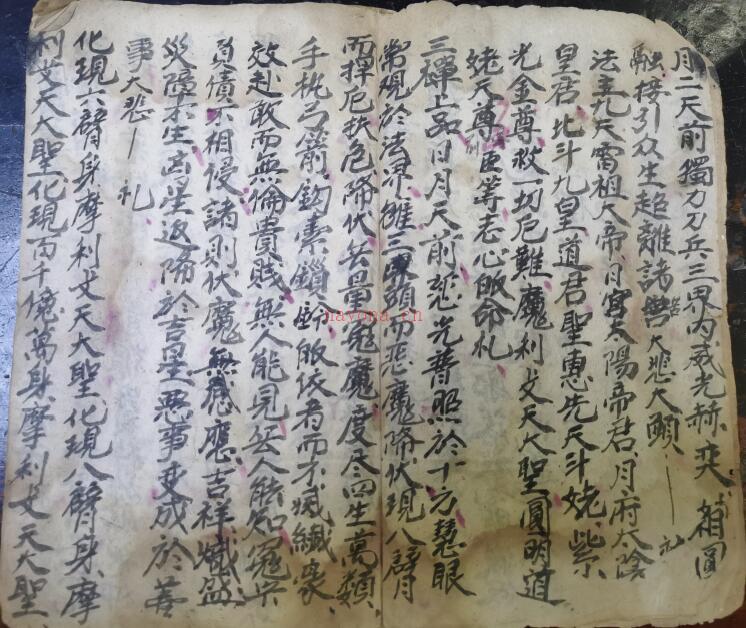 月二天前獨力刀兵三界内威光赫奕蘋圓
融接引众生超離諸苦大悲大願——礼
法主九天雷祖大帝日宮太陽帝君月府太陰
皇君北斗九皇道君聖惠先天斗姥紫
光金尊救一切厄難魔利攴天大聖圓明道
姥天尊臣等志心皈命礼
三禪上品日月天前慈光普照於十方慧眼
常观於法界雄三東頭而悲魔降伏現八臂
而捍厄扶危降伏無量冤魔度尽四生萬類
手执弓箭鈎索鎖皈依者而不减纖毫
效赴敢而無倫貴賤無人能見無人能知冤兵
負债不相侵諸則伏魔無感應吉祥熾盛
災障不生凶星返降於吉星惡事变成於善
事大悲——礼
化現六臂身摩利攴天大聖化現八臂身摩
利攴天大聖化現百千億萬身摩利攴天大聖
nayona.cn